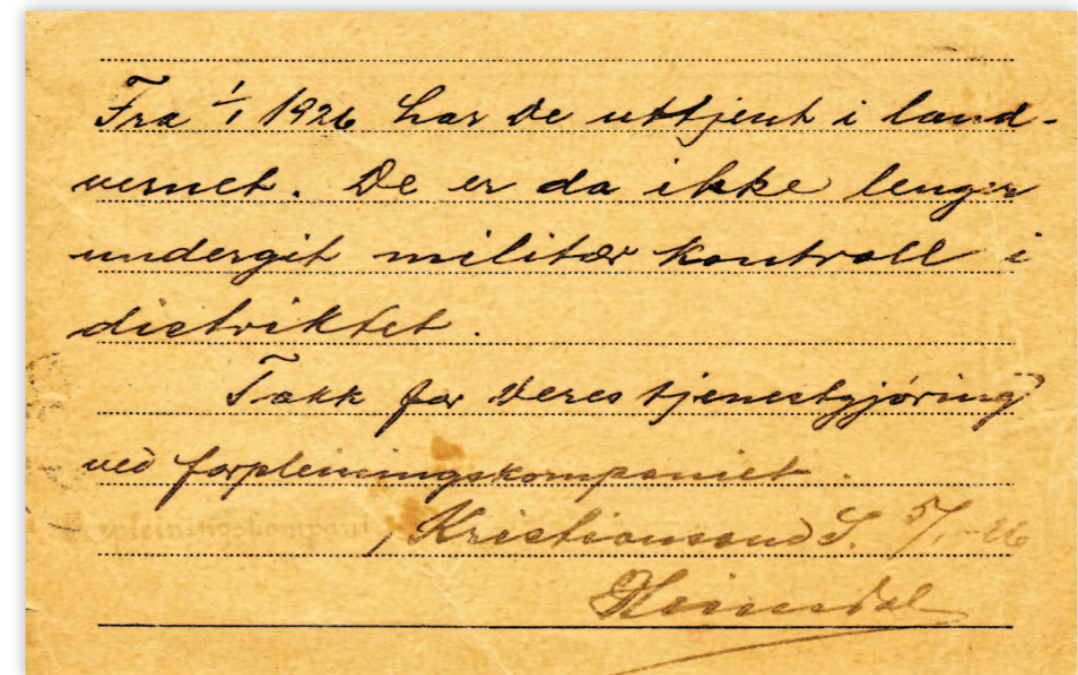 Fra 1/1 1926 har De uttjent i land-
vernet. De er da ikke lenger
undergit militær kontroll i
distriktet.
Takk for Deres tjenestgjøring
ved forpleiningskompaniet.
Kristiansand S. 5/1-26